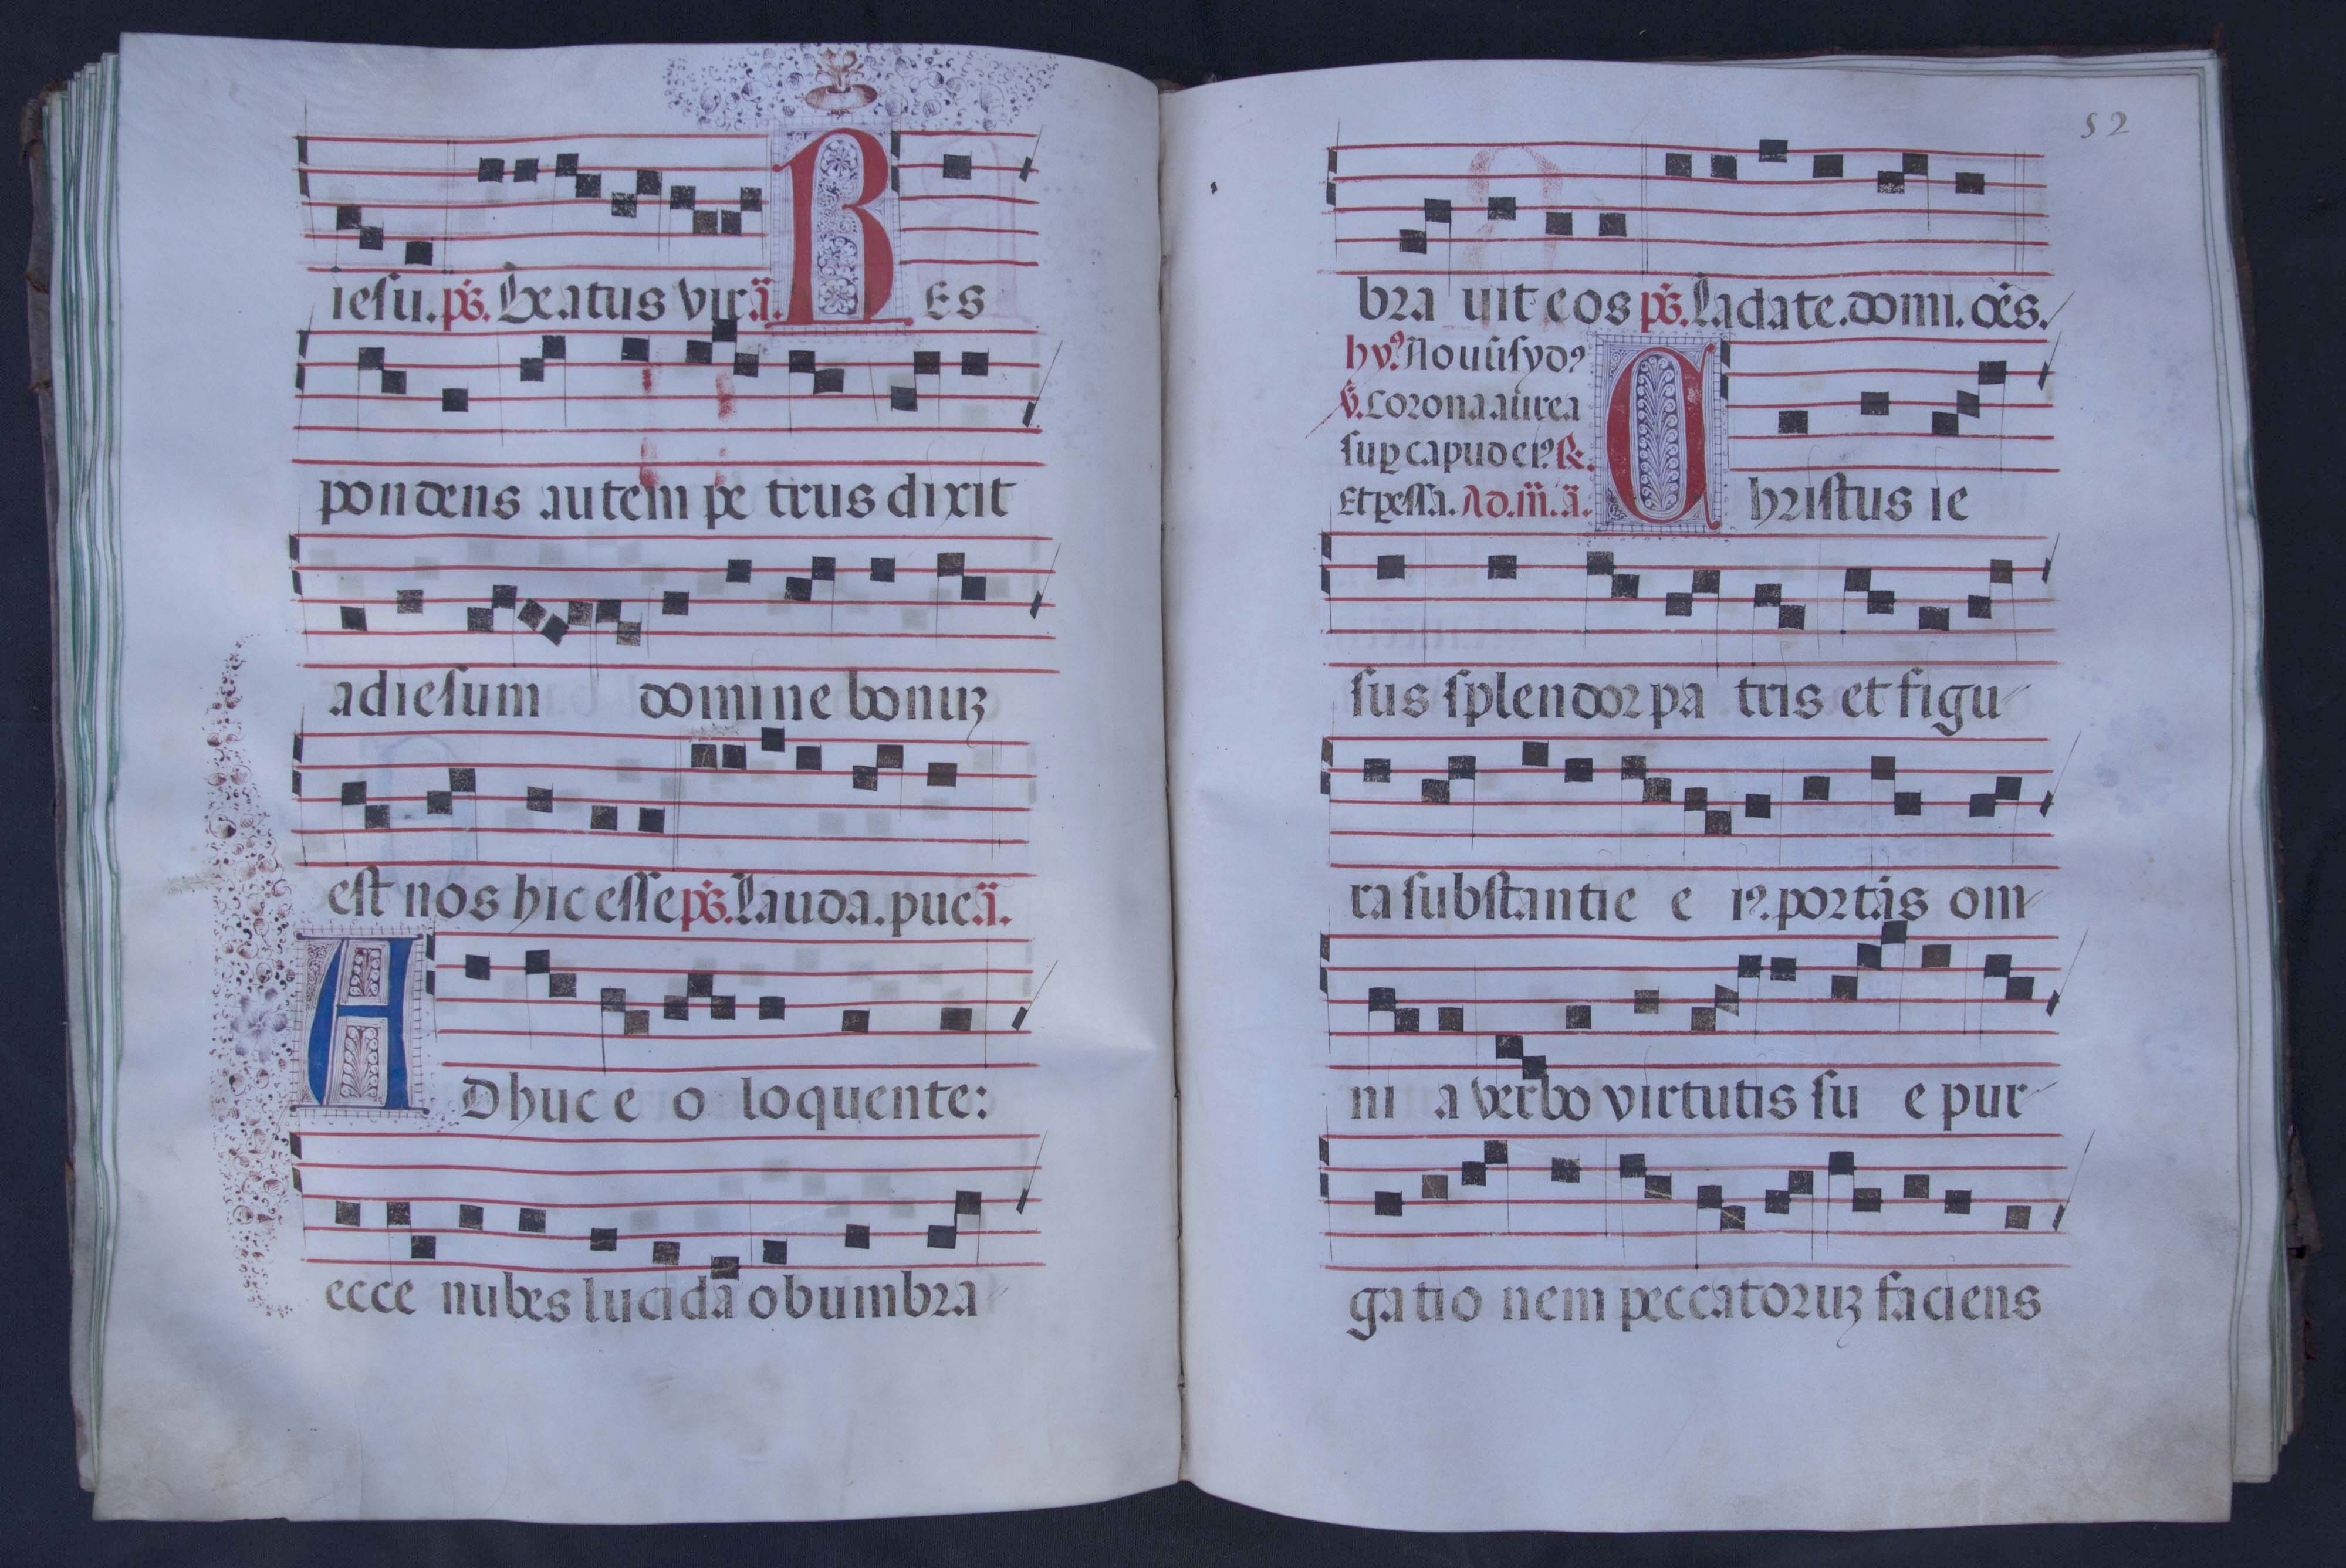 iesu. ps. Beatus vir. a. R Es
pondens autem pe trus dixit
ad iesum domine bonuz
est nos hic esse ps. Lauda. puc. a.
A Dhuc e o loquente:
ecce nubes lucida obumbra
52
bra uit eos ps. Ladate. domi. oēs.
hy⁹. Nouū syd⁹
v̄. Corona aurea
sup capud ei⁹. R.
Et pessa. Ad. m̄. ā. C hristus ie
sus splendor pa tris et figu-
ra substantie e i⁹. portās om-
ni a verbo virtutis su e pur-
gatio nem peccatoruz faciens